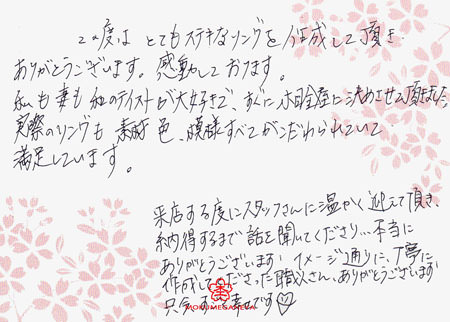 この度は とてもステキなリングを作成して頂き
ありがとうございます。感動しております。
私も妻も和のテイストが大好きで、すぐに杢目金屋に決めさせて頂きました。
実際のリングも 素材 色、模様すべてがこだわられていて
満足しています。
来店する度にスタッフさんに温かく迎えて頂き、
納得するまで話を聞いてくださり…本当に
ありがとうございます。イメージ通りに、丁寧に
作成してくださった職人さん、ありがとうございます。
幸せです♡
MOKUMEGANEYA